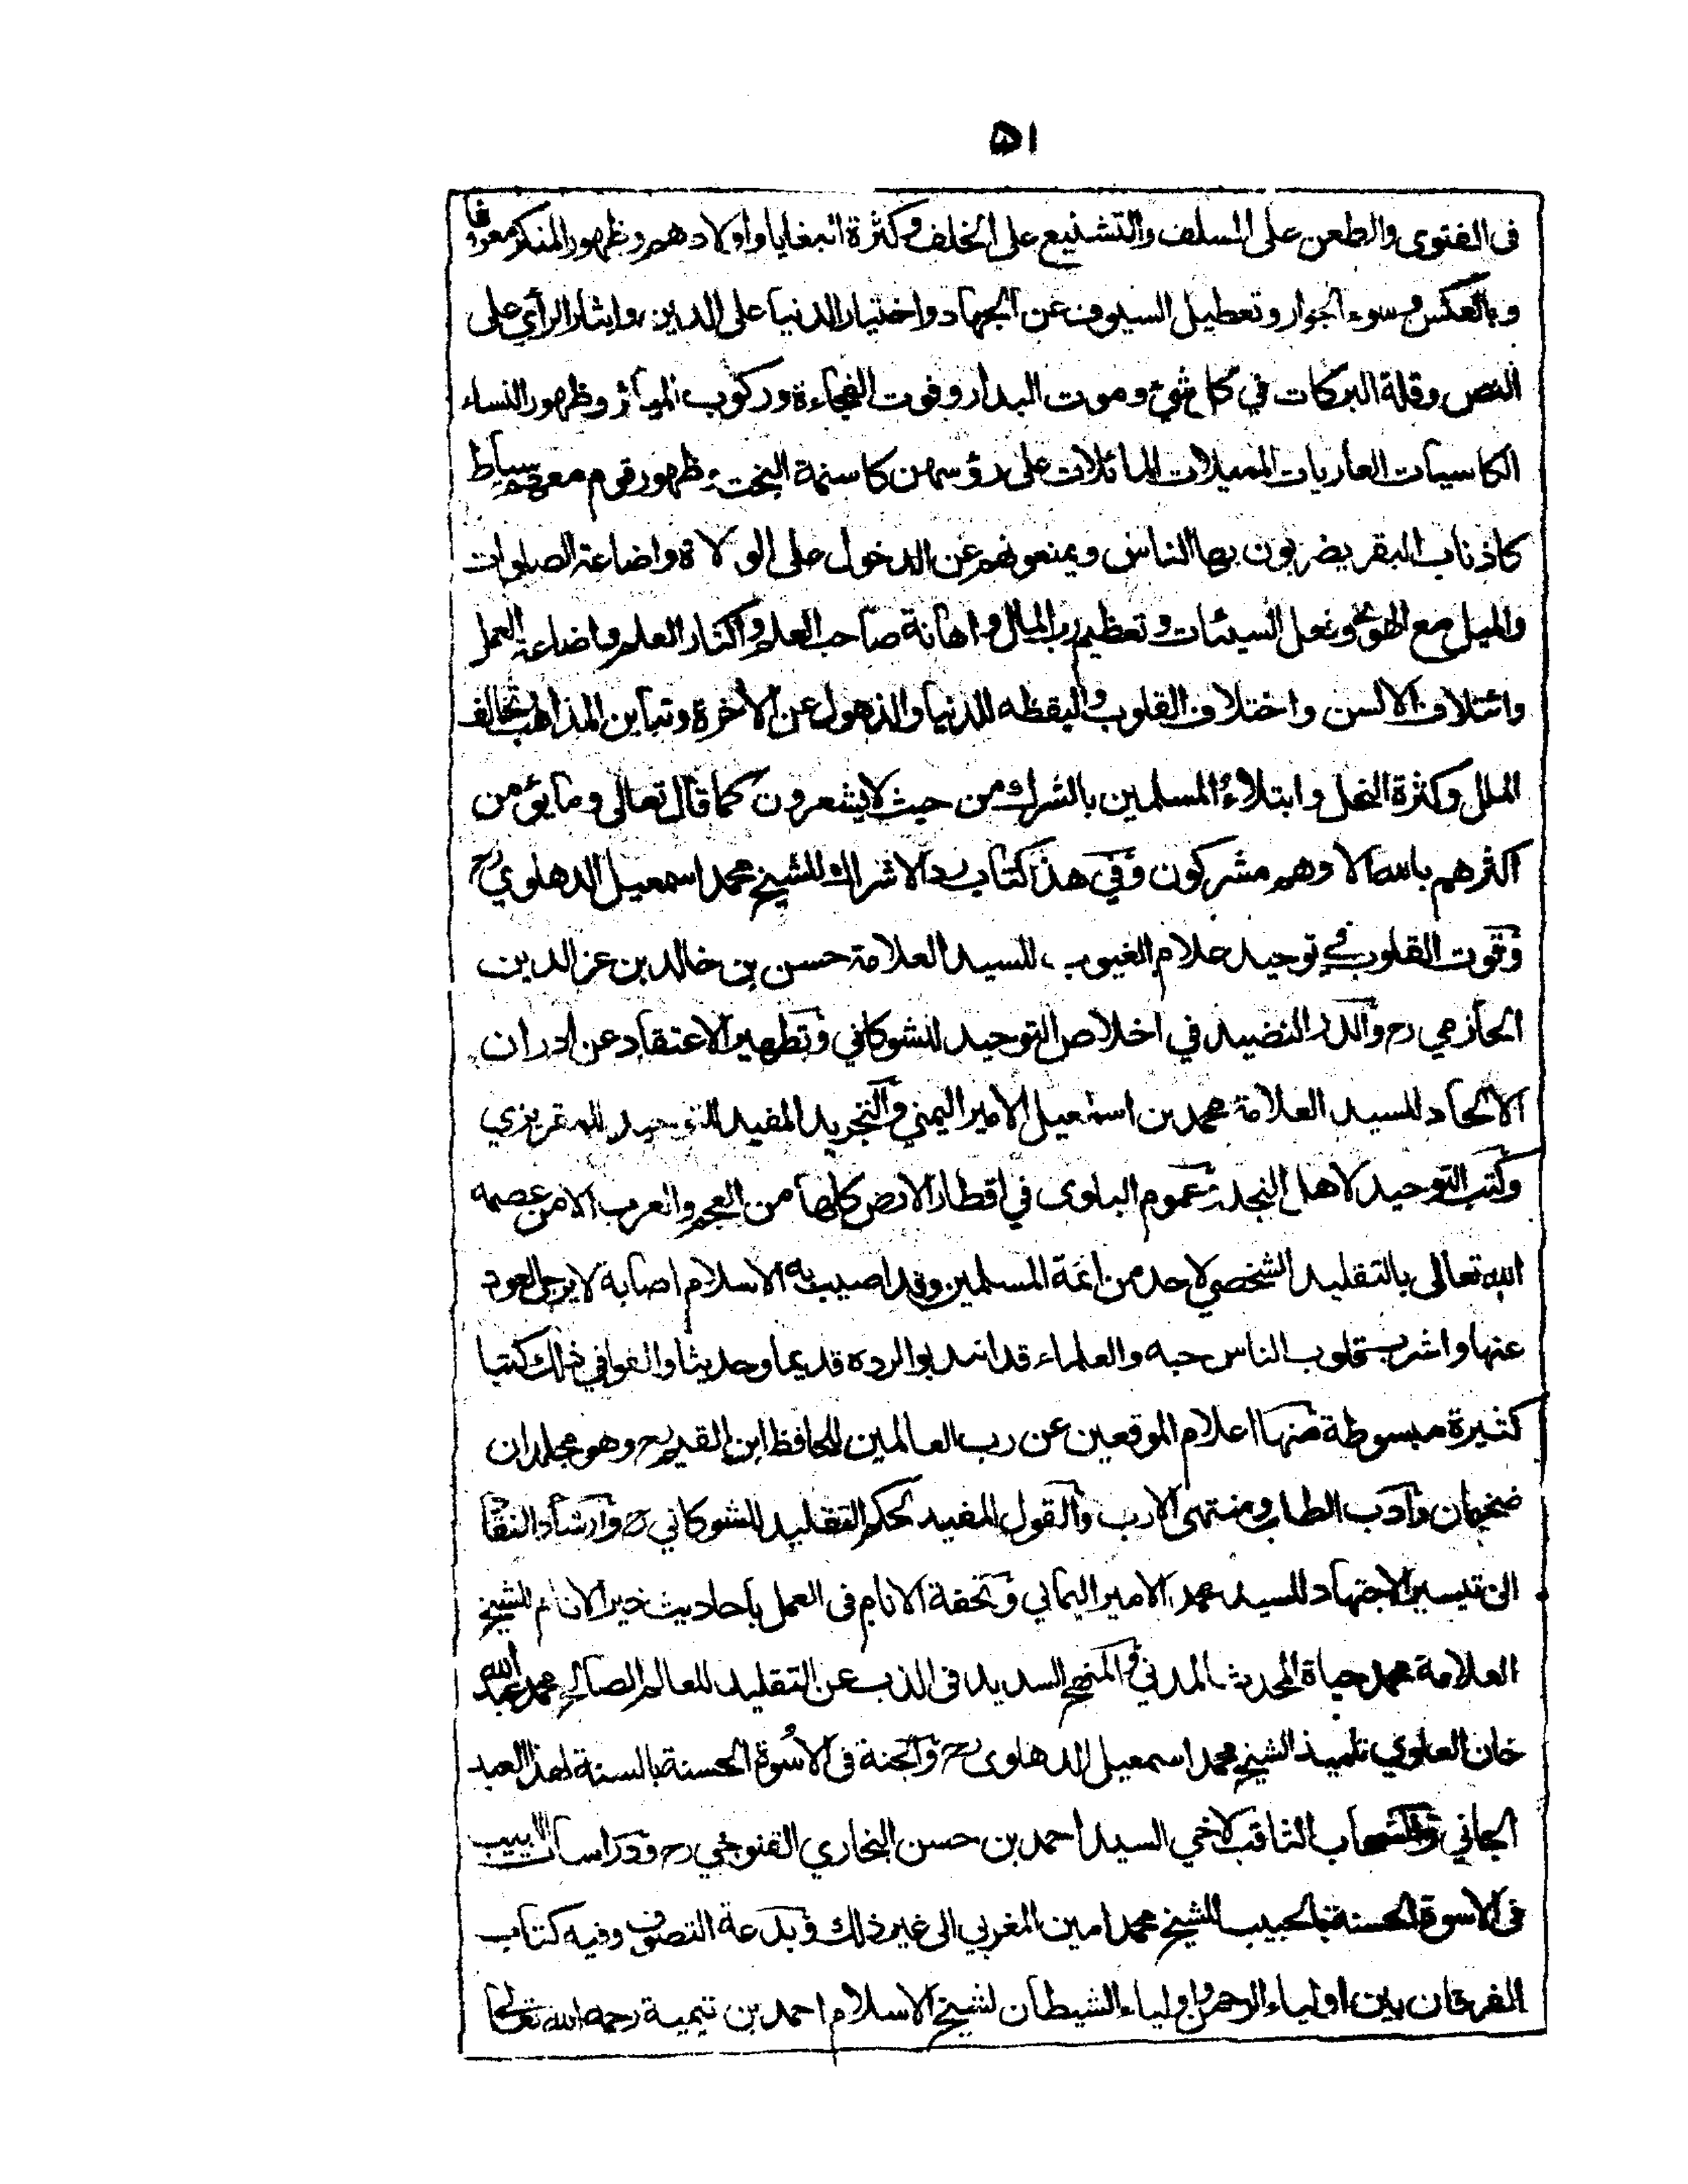 ٥١
فى الفتوى والطعن على السلف والتشنيع على الخلف وكثرة البغايا واولادهم وظهور المنكر معروفا
وبالعكس وسوء الجوار وتعطيل السيوف عن الجهاد واختيار الدنيا على الدين وايثار الرأي على
النص وقلة البركات في كل شئ وموت البدار وفوت الفجاءة وركوب المياثر وظهور النساء
الكاسيات العاريات المميلات المائلات على رؤسهن كاسنمة البخت وظهور قوم معهم سياط
كاذناب البقر يضربون بها الناس ويمنعونهم عن الدخول على الولاة واضاعة الصلوات
والميل مع الهوى وفعل السيئات وتعظيم رب المال واهانة صاحب العلم واكثار العلم واضاعة العمل
وائتلاف الالسن واختلاف القلوب واليقظه للدنيا والذهول عن الأخرة وتباين المذاهب وتخالف
الملل وكثرة النحل وابتلاء المسلمين بالشرك من حيث لا يشعرون كما قال تعالى وما يؤمن
اكثرهم بالله الا وهم مشركون وفي هذا كتاب رد الاشراك للشيخ محمد اسمعيل الدهلوي رح
وقوت القلوب في توحيد علام الغيوب، للسيد العلامة حسن بن خالد بن عز الدين
الحازمي رح والدر النضيد في اخلاص التوحيد للشوكاني وتطهير الاعتقاد عن ادران
الالحاد للسيد العلامة محمد بن اسمعيل الامير اليمني والتجريد المفيد للتوحيد للمقريزي
وكتب التوحيد لاهل النجد وعموم البلوى في اقطار الارض كلها من العجم والعرب الا من عصمه
الله تعالى بالتقليد الشخصي لاحد من ائمة المسلمين وقد اصيب به الاسلام اصابة لا يرجى العود
عنها واشرب قلوب الناس حبه والعلماء قد انتدبوا لرده قديما وحديثا والفوا في ذلك كتبا
كثيرة مبسوطة منها اعلام الموقعين عن رب العالمين للحافظ ابن القيم رح وهو مجلدان
ضخمان وادب الطلب ومنتهى الارب والقول المفيد لحكم التقليد للشوكاني رح وارشاد النقاد
الى تيسير الاجتهاد للسيد محمد الامير اليماني وتحفة الانام فى العمل باحاديث خير الانام للشيخ
العلامة محمد حياة المحدث المدني والمنهج السديد فى الذب عن التقليد للعالم الصالح محمد عبد الله
خان العلوي تلميذ الشيخ محمد اسمعيل الدهلوى رح والجنة فى الأسوة الحسنة بالسنة لهذا العبد
الجاني والشهاب الثاقب لاخي السيد احمد بن حسن البخاري القنوجي رح ودراسات اللبيب
فى الاسوة الحسنة بالحبيب للشيخ محمد امين المغربي الى غير ذلك وبدعة التصوف وفيه كتاب
الفرقان بين اولياء الرحمن واولياء الشيطان لشيخ الاسلام احمد بن تيمية رحمه الله تعالى